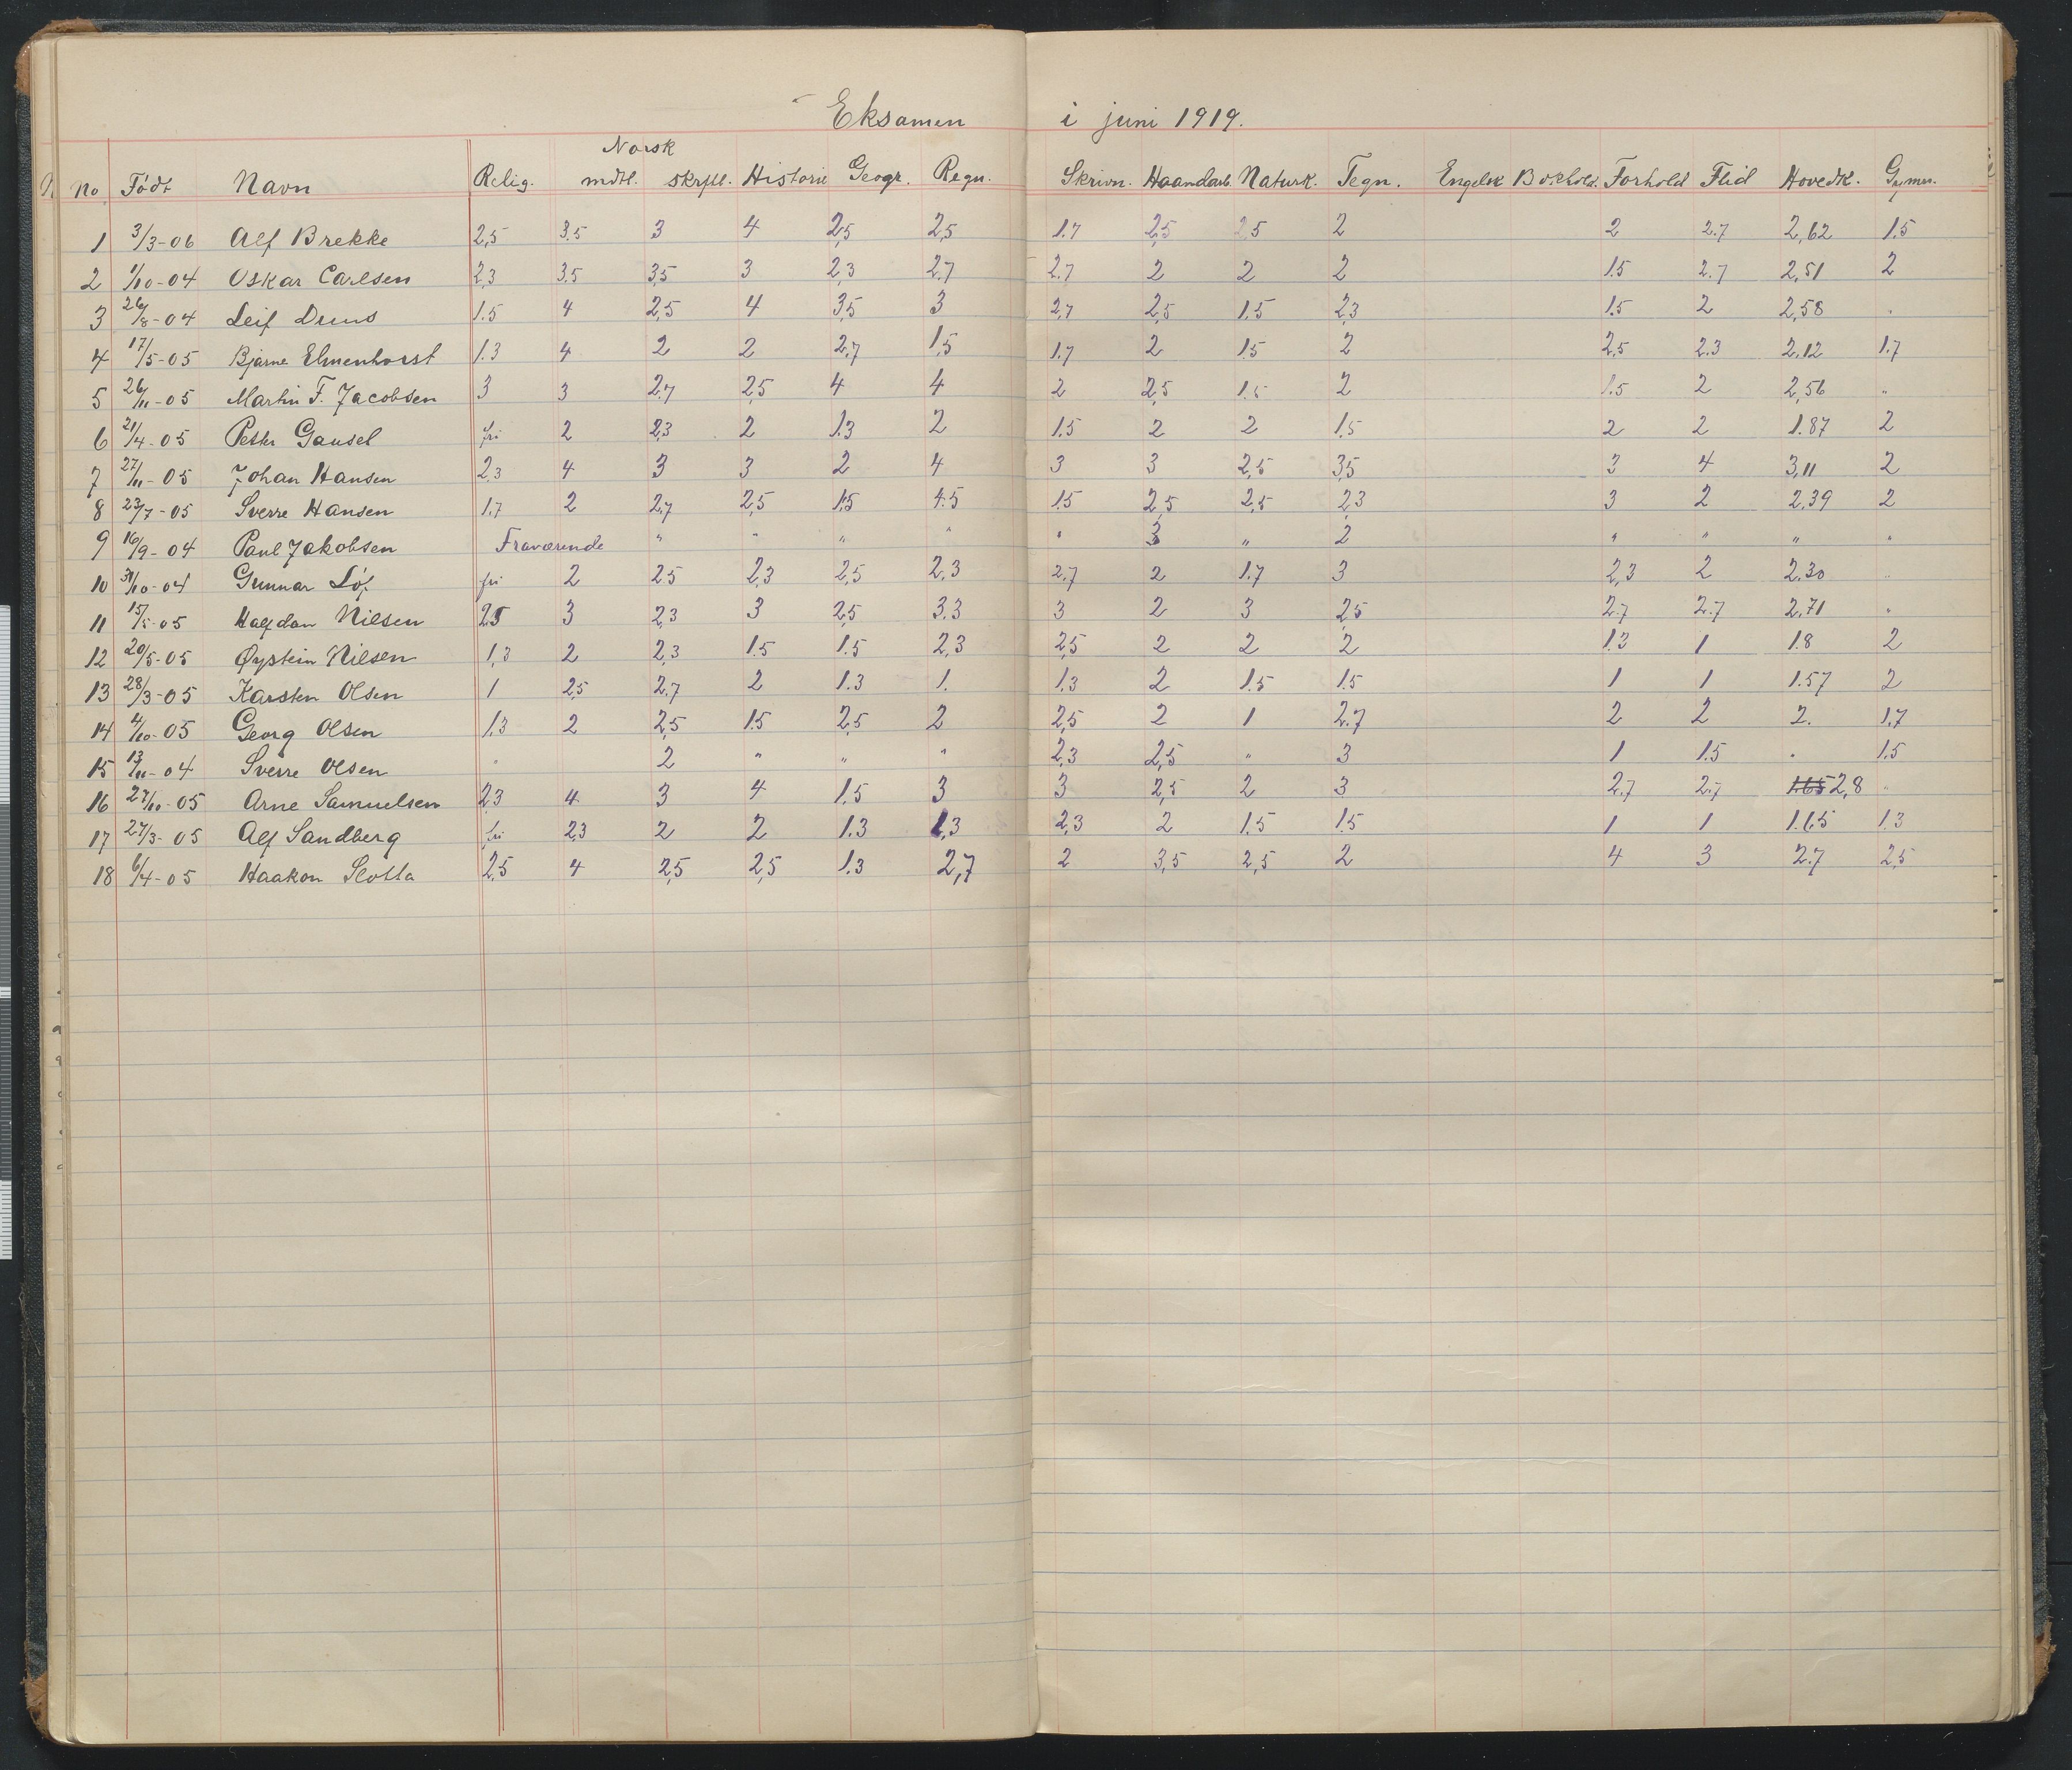 Eksamen i juni 1919.
Norsk
No Født Navn Relig. mdtl. skrftl. Historie Geogr. Regn. Skrivn. Haandarb. Naturk. Tegn. Engelsk Bokhold. Forhold Flid Hovedk. Gymn.
1 3/3-06 Alf Brekke 2,5 3.5 3 4 2,5 2,5 1.7 2,5 2,5 2 2 2.7 2,62 1.5
2 1/10-04 Oskar Carlsen 2,3 3.5 3,5 3 2,3 2,7 2.7 2 2 2 1.5 2.7 2,51 2
3 26/8-04 Leif Duus 1.5 4 2,5 4 3,5 3 2,7 2,5 1.5 2,3 1.5 2 2,58 "
4 17/5-05 Bjarne Elmenhorst 1.3 4 2 2 2,7 1,5 1.7 2 1.5 2 2,5 2.3 2.12 1.7
5 26/11-05 Martin F. Jacobsen 3 3 2.7 2,5 4 4 2 2,5 1.5 2 1.5 2 2,56 "
6 21/4-05 Petter Gausel fri 2 2,3 2 1.3 2 1.5 2 2 1.5 2 2 1.87 2
7 27/11-05 Johan Hansen 2,3 4 3 3 2 4 3 3 2,5 3,5 3 4 3,11 2
8 23/7-05 Sverre Hansen 1.7 2 2,7 2,5 1,5 4.5 1.5 2,5 2,5 2,3 3 2 2,39 2
9 16/9-04 Paul Jakobsen Fraværende " " " " " 3 " 2 " " " "
10 31/10-04 Gunnar Løf fri 2 2.5 2,3 2,5 2,3 2,7 2 1.7 3 2,3 2 2.30 "
11 15/5-05 Halfdan Nilsen 2.5 3 2,3 3 2,5 3.3 3 2 3 2,5 2.7 2.7 2,71 "
12 20/5-05 Øystein Nilsen 1,3 2 2,3 1.5 1.5 2,3 2,5 2 2 2 1.3 1 1.8 2
13 28/3-05 Karsten Olsen 1 2,5 2.7 2 1.3 1. 1,3 2 1.5 1.5 1 1 1.57 2
14 4/10-05 Georg Olsen 1,3 2 2,5 1.5 2,5 2 2,5 2 1 2.7 2 2 2. 1,7
15 13/11-04 Sverre Olsen " 2 " " " 2,3 2,5 " 3 1 1.5 " 1.5
16 27/10-05 Arne Samuelsen 2,3 4 3 4 1.5 3 3 2,5 2 3 2.7 2.7 1.65 2,8 "
17 27/3-05 Alf Sandberg fri 2,3 2 2 1.3 1,3 2,3 2 1.5 1.5 1 1 1.65 1.3
18 6/4-05 Haakon Slotta 2,5 4 2,5 2,5 1.3 2,7 2 3,5 2,5 2 4 3 2.7 2,5